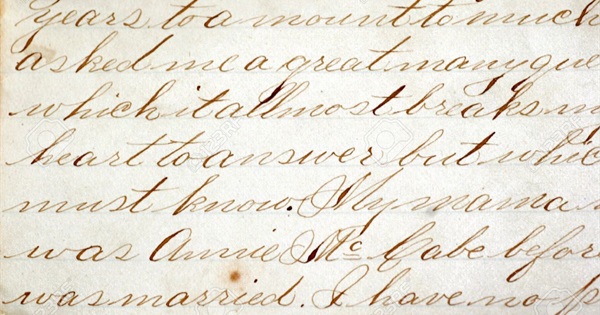 years to amount to much
asked me a great many que
which it allmost breaks m
heart to answer but whic
must know. My mama
was Annie Mc Cabe befor
was married. I have no p